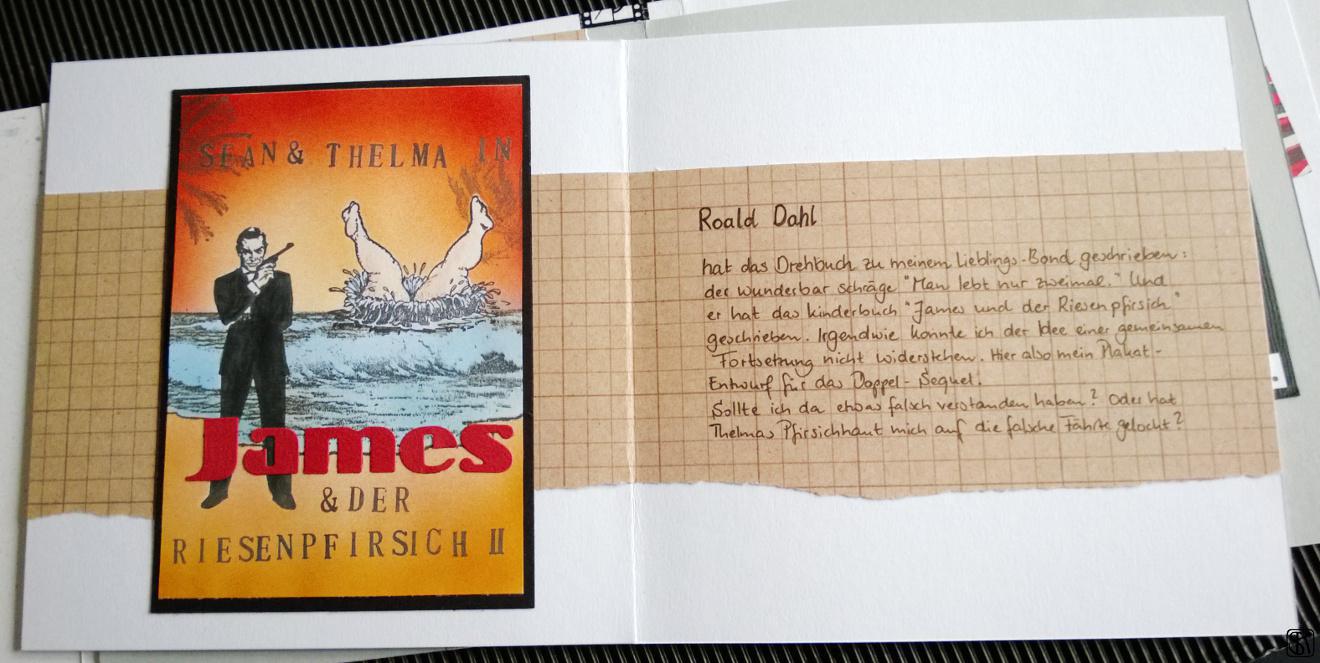 SEAN & THELMA IN
James
& DER
RIESENPFIRSICH II
Roald Dahl
hat das Drehbuch zu meinem Lieblings-Bond geschrieben:
der wunderbar schräge "Man lebt nur zweimal." Und
er hat das Kinderbuch "James und der Riesenpfirsich"
geschrieben. Irgendwie konnte ich der Idee einer gemeinsamen
Fortsetzung nicht widerstehen. Hier also mein Plakat-
Entwurf für das Doppel-Sequel.
Sollte ich da etwas falsch verstanden haben? Oder hat
Thelmas Pfirsichhaut mich auf die falsche Fährte gelockt?